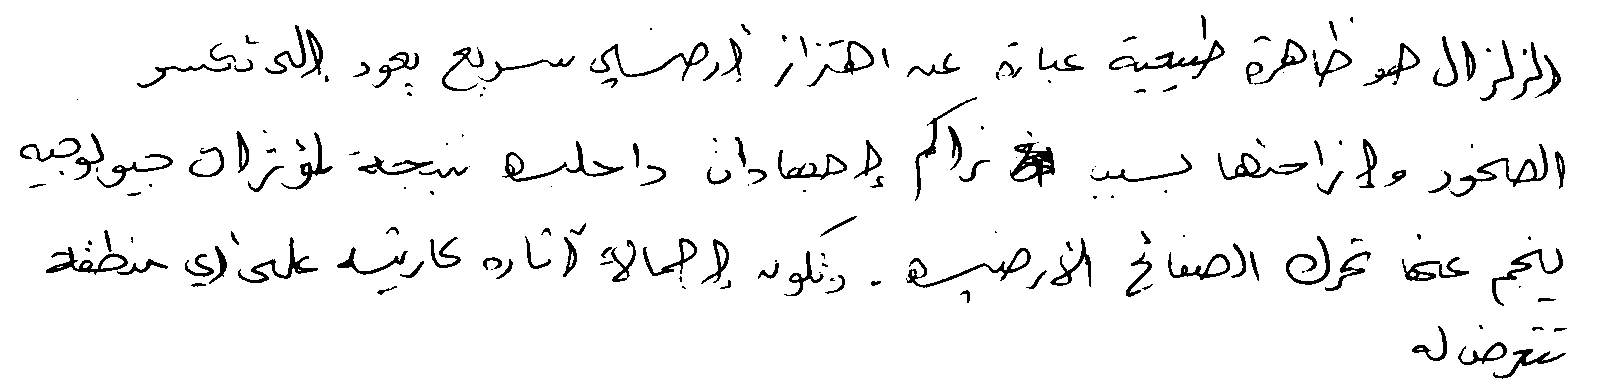 الزلزال هو ظاهرة طبيعية عبارة عن اهتزاز أرضي سريع يعود إلى تكسر
الصخور وإزاحتها بسبب تراكم إجهادات داخلية نتيجة لمؤثرات جيولوجية
ينجم عنها تحرك الصفائح الأرضية . وتكون إجمالا آثاره كارثية على أي منطقة
تتعرض له